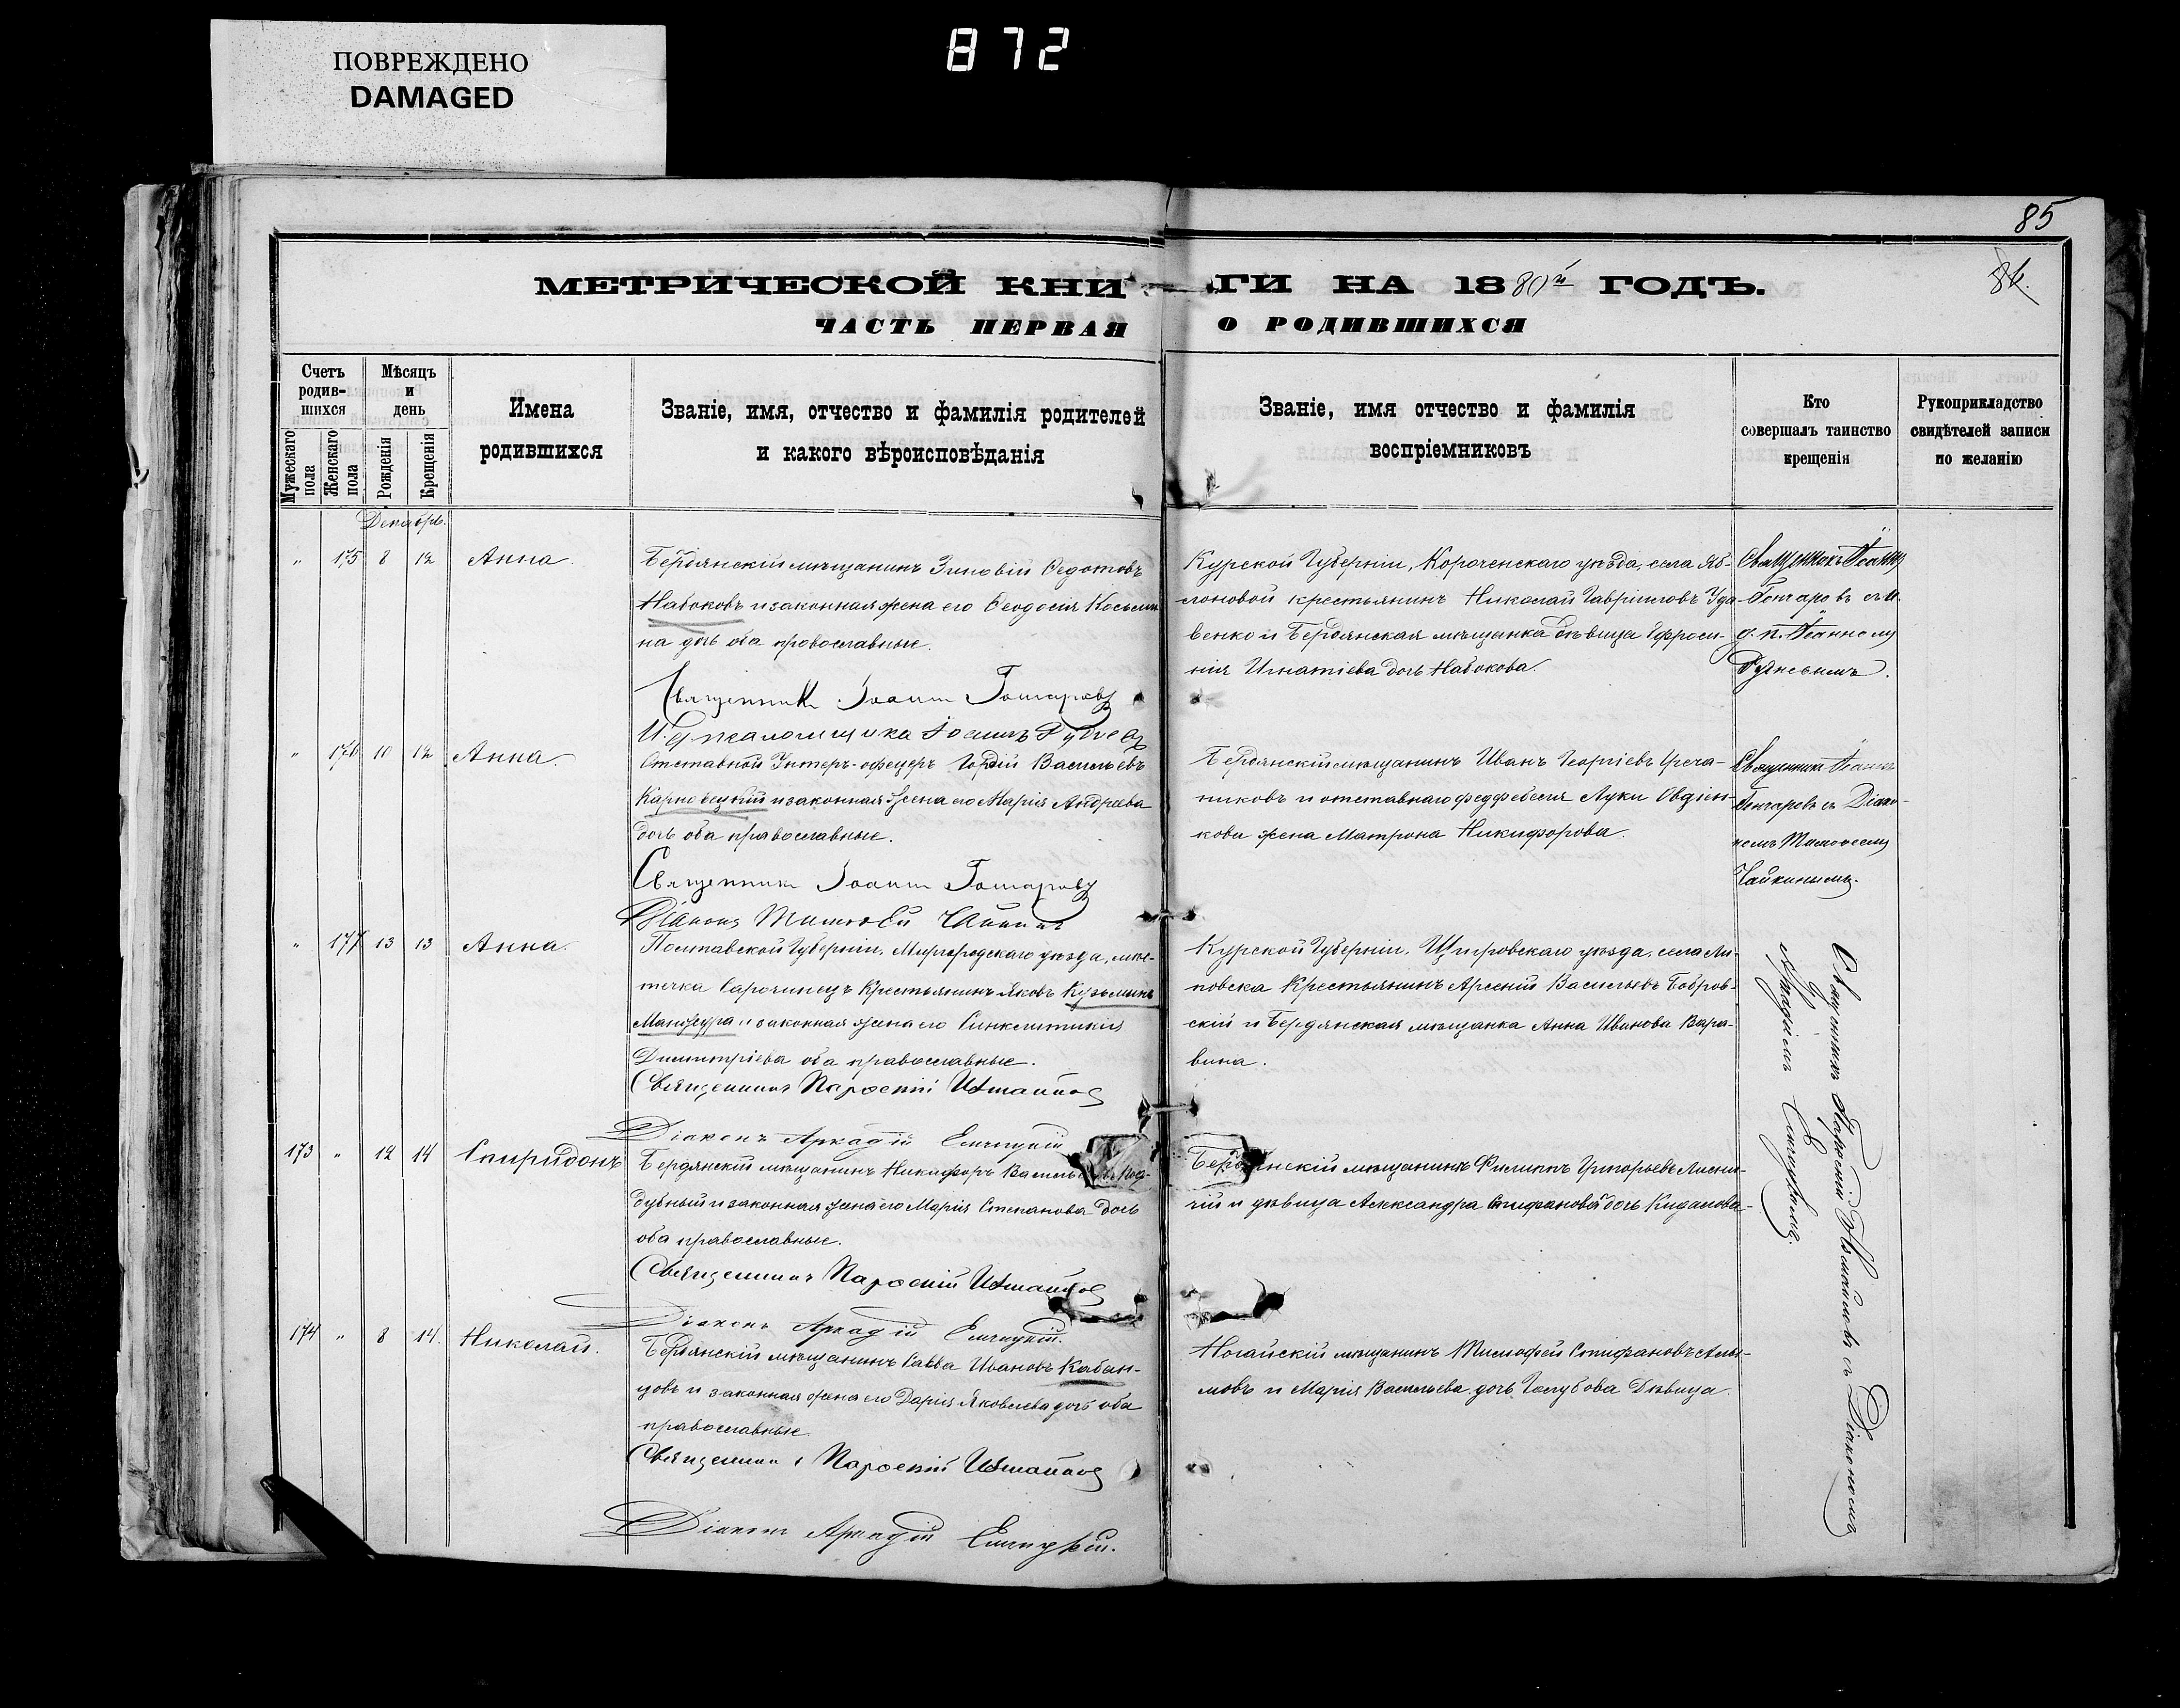 ПОВРЕЖДЕНО
DAMAGED
872
85
86.
МЕТРИЧЕСКОЙ КНИГИ НА 1880й ГОДЪ.
ЧАСТЬ ПЕРВАЯ О РОДИВШИХСЯ
Счетъ родившихся
Мужескаго пола
Женскаго пола
Мѣсяцъ и день
Рожденія
Крещенія
Имена
родившихся
Званіе, имя, отчество и фамилія родителей
и какого вѣроисповѣданія
Званіе, имя отчество и фамилія
воспріемниковъ
Кто
совершалъ таинство
крещенія
Рукоприкладство
свидѣтелей записи
по желанію
Декабрь.
" 175 8 12 Анна.
Бердянскій мѣщанинъ Зиновій Федотовъ
Набоковъ и законная жена его Феодосія Косьми
на дочь оба православные.
Священникъ Іоаннъ Гончаровъ
И. д. псаломщика Іоаннъ
Курской Губерніи, Короченскаго уѣзда, села Яб-
лоновой крестьянинъ Николай Гавріиловъ Уда
венко и Бердянская мѣщанка дѣвица Ефроси-
нія Игнатіева дочь Набокова.
Священникъ Іоаннъ
Гончаровъ съ и.
д. п. Іоанномъ
" 176 10 12 Анна.
Отставной Унтеръ-офицеръ Гордій Васильевъ
и законная жена его Марія Андреева
дочь оба православные.
Священникъ Іоаннъ Гончаровъ
Діаконъ Тимофей Чайкинъ
Бердянскій мѣщанинъ Иванъ Георгіевъ Греча-
никовъ и отставнаго федфебеля Луки Овдіен-
кова жена Матрона Никифорова.
Священникъ Іоаннъ
Гончаровъ съ Діако-
номъ Тимофеемъ
Чайкинымъ.
" 177 13 13 Анна.
Полтавской Губерніи, Миргородскаго уѣзда, мѣс-
течка Сарочинецъ Крестьянинъ Яковъ Кузьминъ
Манжура и законная жена его Синклитикія
Димитріева оба православные.
Священникъ Парфеній Измайловъ
Діаконъ Аркадій
Курской Губерніи, Щигровскаго уѣзда, села Ли-
повска Крестьянинъ Арсеній Васильевъ Бобров-
скій и Бердянская мѣщанка Анна Иванова Вара-
вина.
Священникъ Парфеній Измайловъ съ Діакономъ
Аркадіемъ
173 " 12 14 Спиридонъ
Бердянскій мѣщанинъ Никифоръ Васильевъ Под-
дубный и законная жена его Марія Степанова дочь
оба православные.
Священникъ Парфеній Измайловъ
Діаконъ Аркадій
Бердянскій мѣщанинъ Филиппъ Григорьевъ Лисни-
чій и дѣвица Александра дочь
174 " 8 14. Николай.
Бердянскій мѣщанинъ Савва Ивановъ Кабан-
цовъ и законная жена его Дарія Яковлева дочь оба
православные.
Священникъ Парфеній Измайловъ
Діаконъ Аркадій
Ногайскій мѣщанинъ Тимофей Стифановъ
и Марія Васильева дочь Голубова Дѣвица.